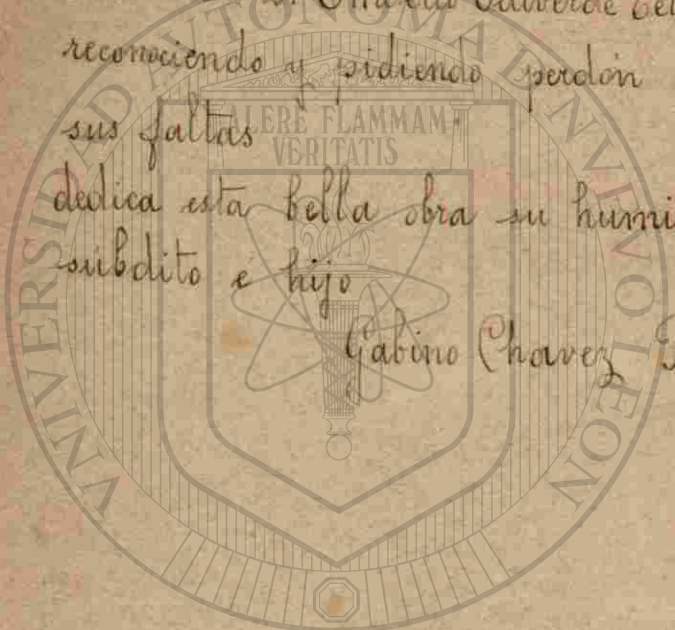 Valverde
reconociendo y pidiendo perdón
sus faltas
dedica esta bella obra su humi
súbdito é hijo
Gabino Chavez
UNIVERSIDAD AUTONOMA DE NUEVO LEON
ALERE FLAMMAM
VERITATIS